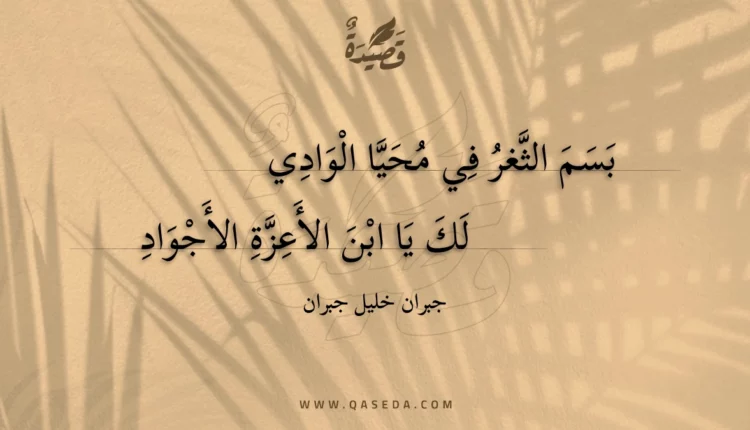 قَصِيْدَةٌ
بَسَمَ الثَّغرُ فِي مُحَيَّا الْوَادِي
لَكَ يَا ابْنَ الأَعِزَّةِ الأَجْوَادِ
جبران خليل جبران
WWW.QASEDA.COM